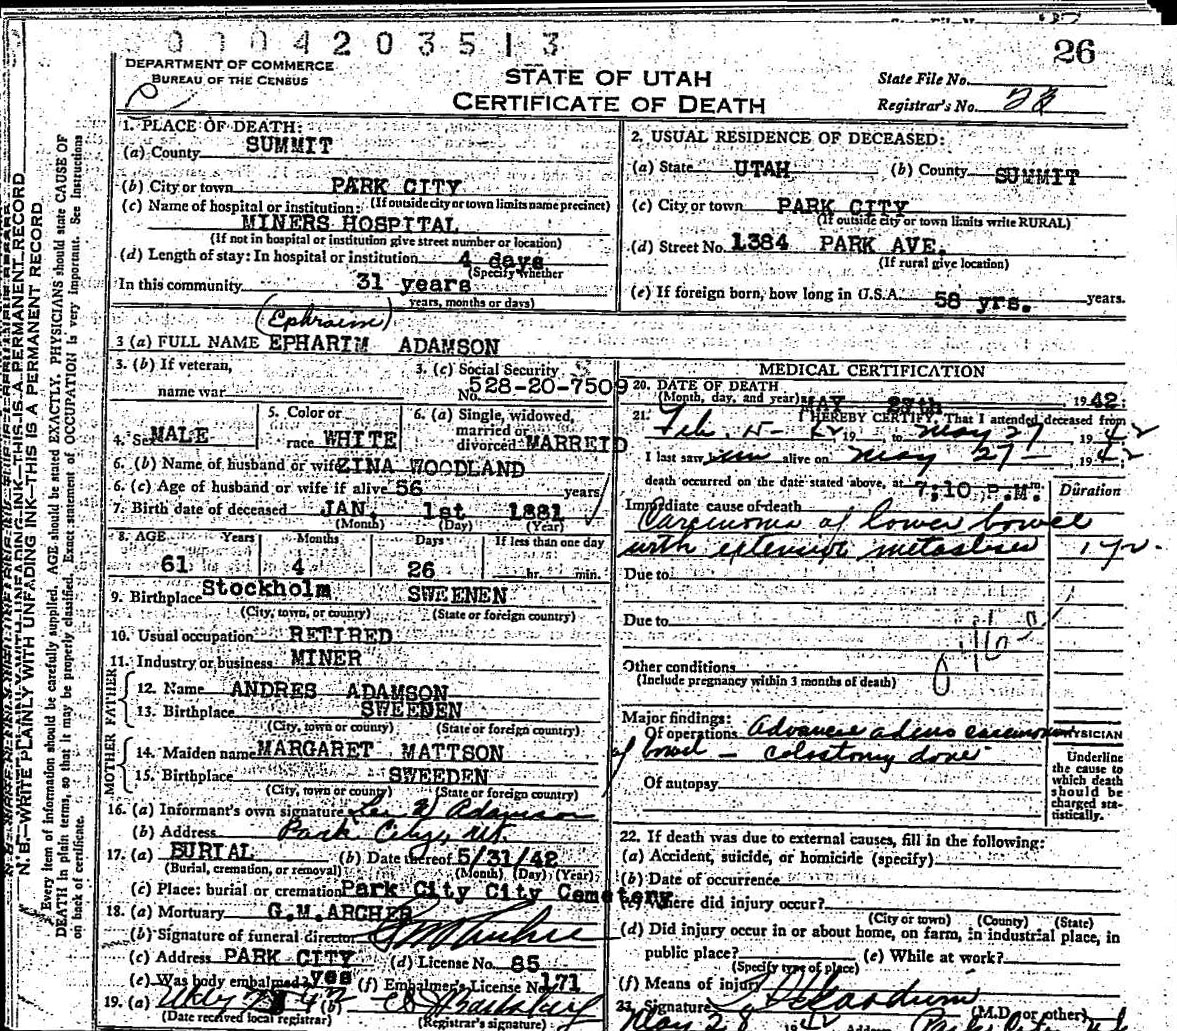 0 0 0 4 2 0 3 5 1 3
26
DEPARTMENT OF COMMERCE
BUREAU OF THE CENSUS
STATE OF UTAH
CERTIFICATE OF DEATH
State File No.
Registrar's No. 23
N. B.—WRITE PLAINLY WITH UNFADING INK—THIS IS A PERMANENT RECORD
Every item of information should be carefully supplied. AGE should be stated EXACTLY. PHYSICIANS should state CAUSE OF
DEATH in plain terms, so that it may be properly classified. Exact statement of OCCUPATION is very important. See Instructions
on back of certificate.
1. PLACE OF DEATH:
(a) County SUMMIT
(b) City or town PARK CITY
(If outside city or town limits name precinct)
(c) Name of hospital or institution:
MINERS HOSPITAL
(If not in hospital or institution give street number or location)
(d) Length of stay: In hospital or institution 4 days
(Specify whether
In this community 31 years
years, months or days)
2. USUAL RESIDENCE OF DECEASED:
(a) State UTAH (b) County SUMMIT
(c) City or town PARK CITY
(If outside city or town limits write RURAL)
(d) Street No. 1384 PARK AVE.
(If rural give location)
(e) If foreign born, how long in U.S.A. 58 yrs. years.
(Ephraim)
3 (a) FULL NAME EPHARIM ADAMSON
3. (b) If veteran,
name war
3. (c) Social Security
No. 528-20-7509
4. Sex MALE
5. Color or
race WHITE
6. (a) Single, widowed,
married or
divorced MARREID
6. (b) Name of husband or wife ZINA WOODLAND
6. (c) Age of husband or wife if alive 56 years
7. Birth date of deceased JAN. 1st 1881
(Month) (Day) (Year)
8. AGE Years Months Days If less than one day
61 4 26 hr. min.
9. Birthplace Stockholm SWEENEN
(City, town, or county) (State or foreign country)
10. Usual occupation RETIRED
11. Industry or business MINER
FATHER
12. Name ANDRES ADAMSON
13. Birthplace SWEEDEN
(City, town or county) (State or foreign country)
MOTHER
14. Maiden name MARGARET MATTSON
15. Birthplace SWEEDEN
(City, town or county) (State or foreign country)
16. (a) Informant's own signature Adamson
(b) Address Park City, Ut.
17. (a) BURIAL (b) Date thereof 5/31/42
(Burial, cremation, or removal) (Month) (Day) (Year)
(c) Place: burial or cremation Park City City Cemetery
18. (a) Mortuary G.M.ARCHER
(b) Signature of funeral director
(c) Address PARK CITY (d) License No. 85
(e) Was body embalmed? yes (f) Embalmer's License No. 171
19. (a) (b)
(Date received local registrar) (Registrar's signature)
MEDICAL CERTIFICATION
20. DATE OF DEATH
(Month, day, and year) MAY 27th 1942;
21. I HEREBY CERTIFY, That I attended deceased from
Feb. 15 - 42 19 to May 27 1942
I last saw him alive on May 27 - , 1942;
death occurred on the date stated above, at 7:10 P.M. m.
Duration
Immediate cause of death
Carcinoma of lower bowel
with extensive metastases 1 yr.
Due to
Due to
Other conditions
(Include pregnancy within 3 months of death)
Major findings:
Of operations Advance adeno carcinoma
of bowel - colostomy done
Of autopsy
PHYSICIAN
Underline
the cause to
which death
should be
charged sta-
tistically.
22. If death was due to external causes, fill in the following:
(a) Accident, suicide, or homicide (specify)
(b) Date of occurrence
(c) Where did injury occur?
(City or town) (County) (State)
(d) Did injury occur in or about home, on farm, in industrial place, in
public place? (e) While at work?
(Specify type of place)
(f) Means of injury
23. Signature (M.D. or other)
May 28 1942 Address Park City